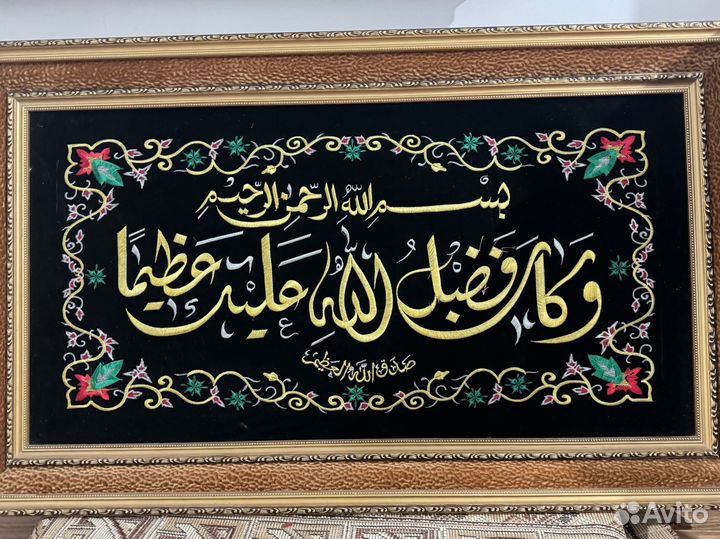 بسم الله الرحمن الرحيم
وكان فضل الله عليك عظيما
صدق الله العظيم
Avito